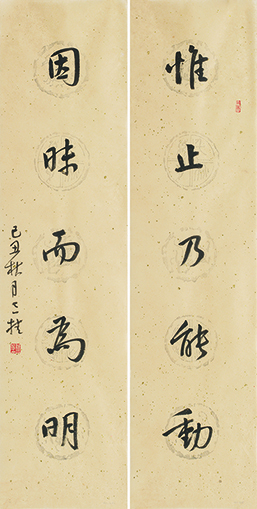 惟止乃能動
因昧而為明
己丑秋月